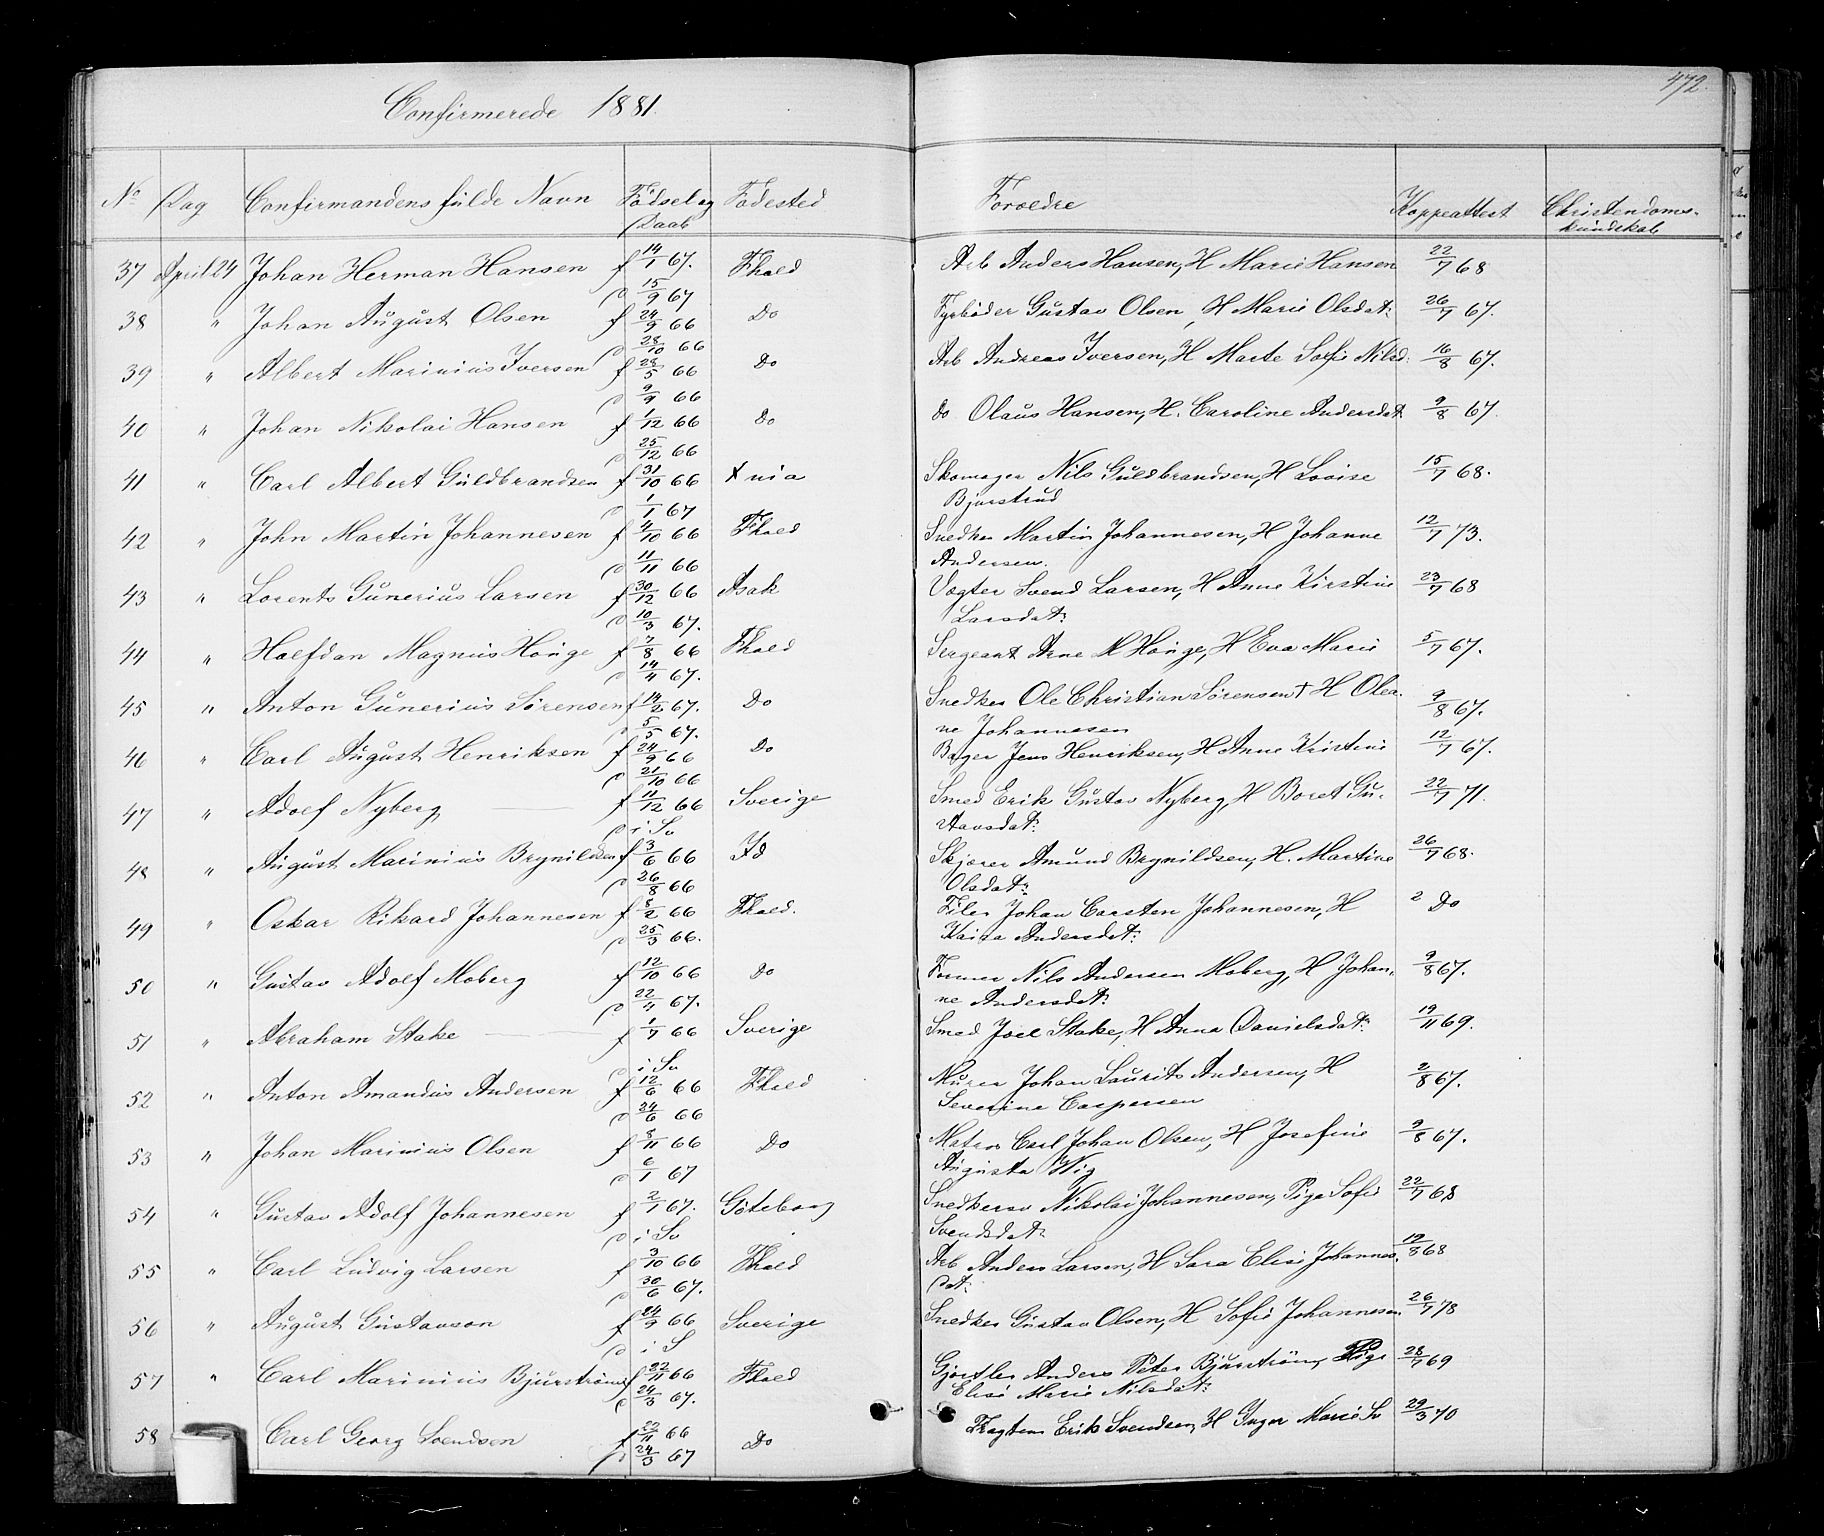 472.
Confirmerede 1881.
No Dag Confirmandens fulde Navn Fødsel og Daab Fødested Forældre Koppeattest Christendoms-
kundskab
37 April 24 Johan Herman Hansen f 14/1 67. Fhald Arb Anders Hansen, H Marie Hansen 22/7 68
d 15/9 67
38 " Johan August Olsen f 24/9 66 Do Fyrbøder Gustav Olsen, H Marie Olsdat: 26/7 67.
d 28/10 66
39 " Albert Marinius Iversen f 28/5 66 Do Arb Andreas Iversen, H Marte Sofie Nilsd: 16/8 67.
d 9/9 66
40 " Johan Nikolai Hansen f 1/12 66 Do do Olaus Hansen, H. Caroline Andersdat: 9/8 67.
d 25/12 66
41 " Carl Albert Guldbrandsen f 31/10 66 Xnia Skomager Nils Guldbrandsen, H Lovise 15/7 68.
d 1/1 67 Bjurstrud
42 " John Martin Johannesen f 4/10 66 Fhald Snedker Martin Johannesen, H Johanne 12/7 73.
d 11/11 66 Andersen.
43 " Lorents Gunerius Larsen f 30/12 66 Asak Vægter Svend Larsen, H Anne Kirstine 23/7 68
d 10/3 67. Larsdat:
44 " Halfdan Magnus Honge f 7/8 66 Fhald Sergeant Arne M Honge, H Eva Marie 5/7 67.
d 14/4 67.
45 " Anton Gunerius Sørensen f 14/2 67. Do Snedker Ole Christian Sørensen † H Olea- 9/8 67.
d 5/5 67. ne Johannesen
46 " Carl August Henriksen f 24/9 66 Do Bager Jens Henriksen, H Anne Kristine 12/7 67.
d 21/10 66
47 " Adolf Nyberg f 11/12 66 Sverige Smed Erik Gustav Nyberg, H Boret Gu- 22/7 71.
d i Sv stavsdat:
48 " August Marinius Brynildsen f 3/6 66 Id Skjærer Amund Brynildsen, H. Martine 26/7 68.
d 26/8 66 Olsdat:
49 " Oskar Rikard Johannesen f 8/2 66 Fhald. Filer Johan Carsten Johannesen, H 2 Do
d 25/3 66. Kaisa Andersdat:
50 " Gustav Adolf Moberg f 12/10 66 Do Former Nils Andersen Moberg, H Johan- 9/8 67.
d 22/4 67. ne Andersdat:
51 " Abraham Stake f 1/7 66 Sverige Smed Joel Stake, H Anna Danielsdat: 19/11 69.
d i Sv
52 " Anton Amandus Andersen f 12/6 66 Fhald Murer Johan Laurits Andersen, H 2/8 67.
d 24/6 66 Severine Caspersen
53 " Johan Marinius Olsen f 8/11 66 Do Matros Carl Johan Olsen, H Josefine 9/8 67.
d 6/1 67 Augusta Wig
54 " Gustav Adolf Johannesen f 2/1 67. Göteborg Snedkersv Nikolai Johannesen, Pige Sofie 22/7 68
d i Sv Svendsdat:
55 " Carl Ludvig Larsen f 3/10 66 Fhald Arb Anders Larsen, H Sara Elise Johannes- 19/8 68
d 30/6 67. dat:
56 " August Gustavson f 24/9 66 Sverige Snedker Gustav Olsen, H Sofie Johannesen 26/7 78
d i S
57 " Carl Marinius Bjurstrøm f 22/11 66 Fhald Gjørtler Anders Peter Bjurstrøm, Pige 28/7 69
d 24/3 67. Elise Marie Nilsdat:
58 Carl Georg Svendsen f 22/11 66 Do Fragtem Erik Svendsen, H Inger Marie Sv 29/3 70
d 24/3 67